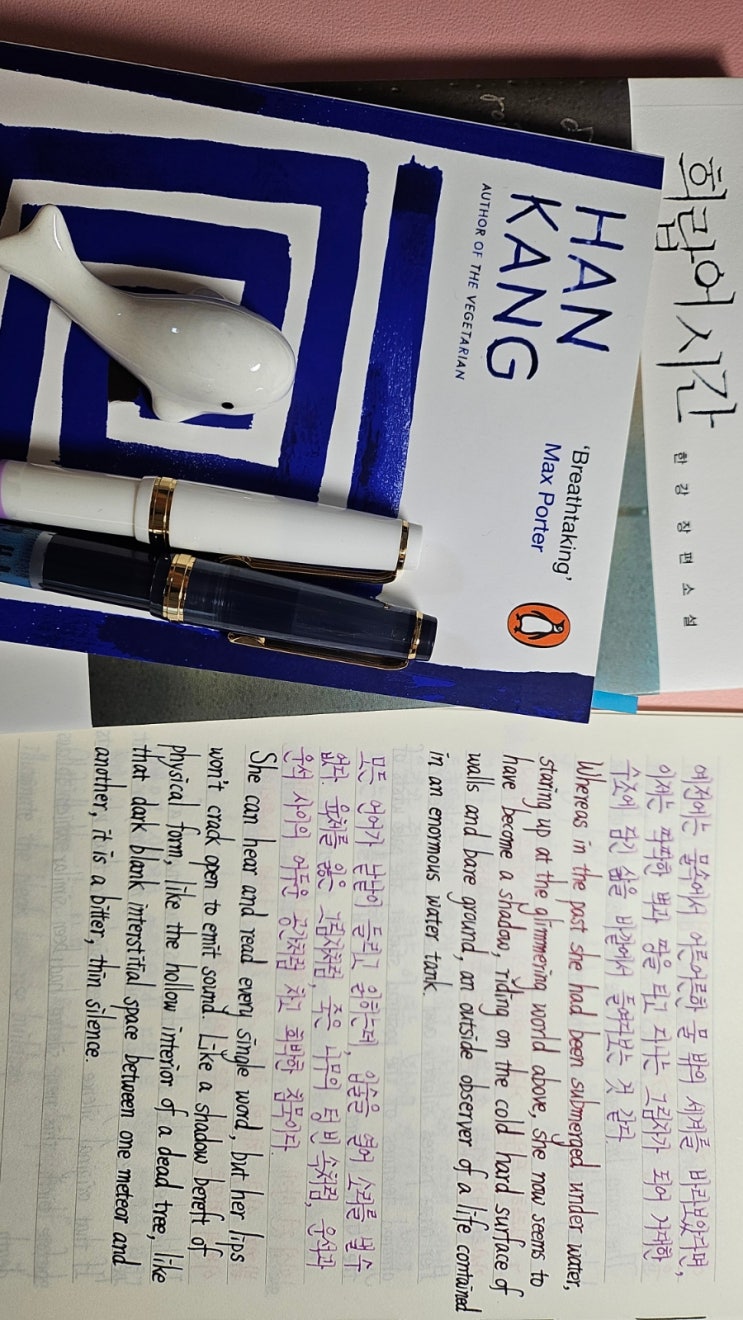 희랍어 시간
한강 장편소설
HAN
KANG
AUTHOR OF THE VEGETARIAN
'Breathtaking'
Max Porter
예전에는 물속에서 어른어른한 물 밖의 세계를 바라보았다면,
이제는 딱딱한 벽과 땅을 타고 다니는 그림자가 되어 거대한
수조에 담긴 삶을 바깥에서 들여다보는 것 같다.
Whereas in the past she had been submerged under water,
staring up at the glimmering world above, she now seems to
have become a shadow, riding on the cold hard surface of
walls and bare ground, an outside observer of a life contained
in an enormous water tank.
모든 언어가 낱낱이 들리고 읽히는데, 입술을 열어 소리를 낼 수
없다. 육체를 잃은 그림자처럼, 죽은 나무의 텅 빈 속처럼, 운석과
운석 사이의 어두운 공간처럼 차고 희박한 침묵이다.
She can hear and read every single word, but her lips
won't crack open to emit sound. Like a shadow bereft of
physical form, like the hollow interior of a dead tree, like
that dark blank interstitial space between one meteor and
another, it is a bitter, thin silence.